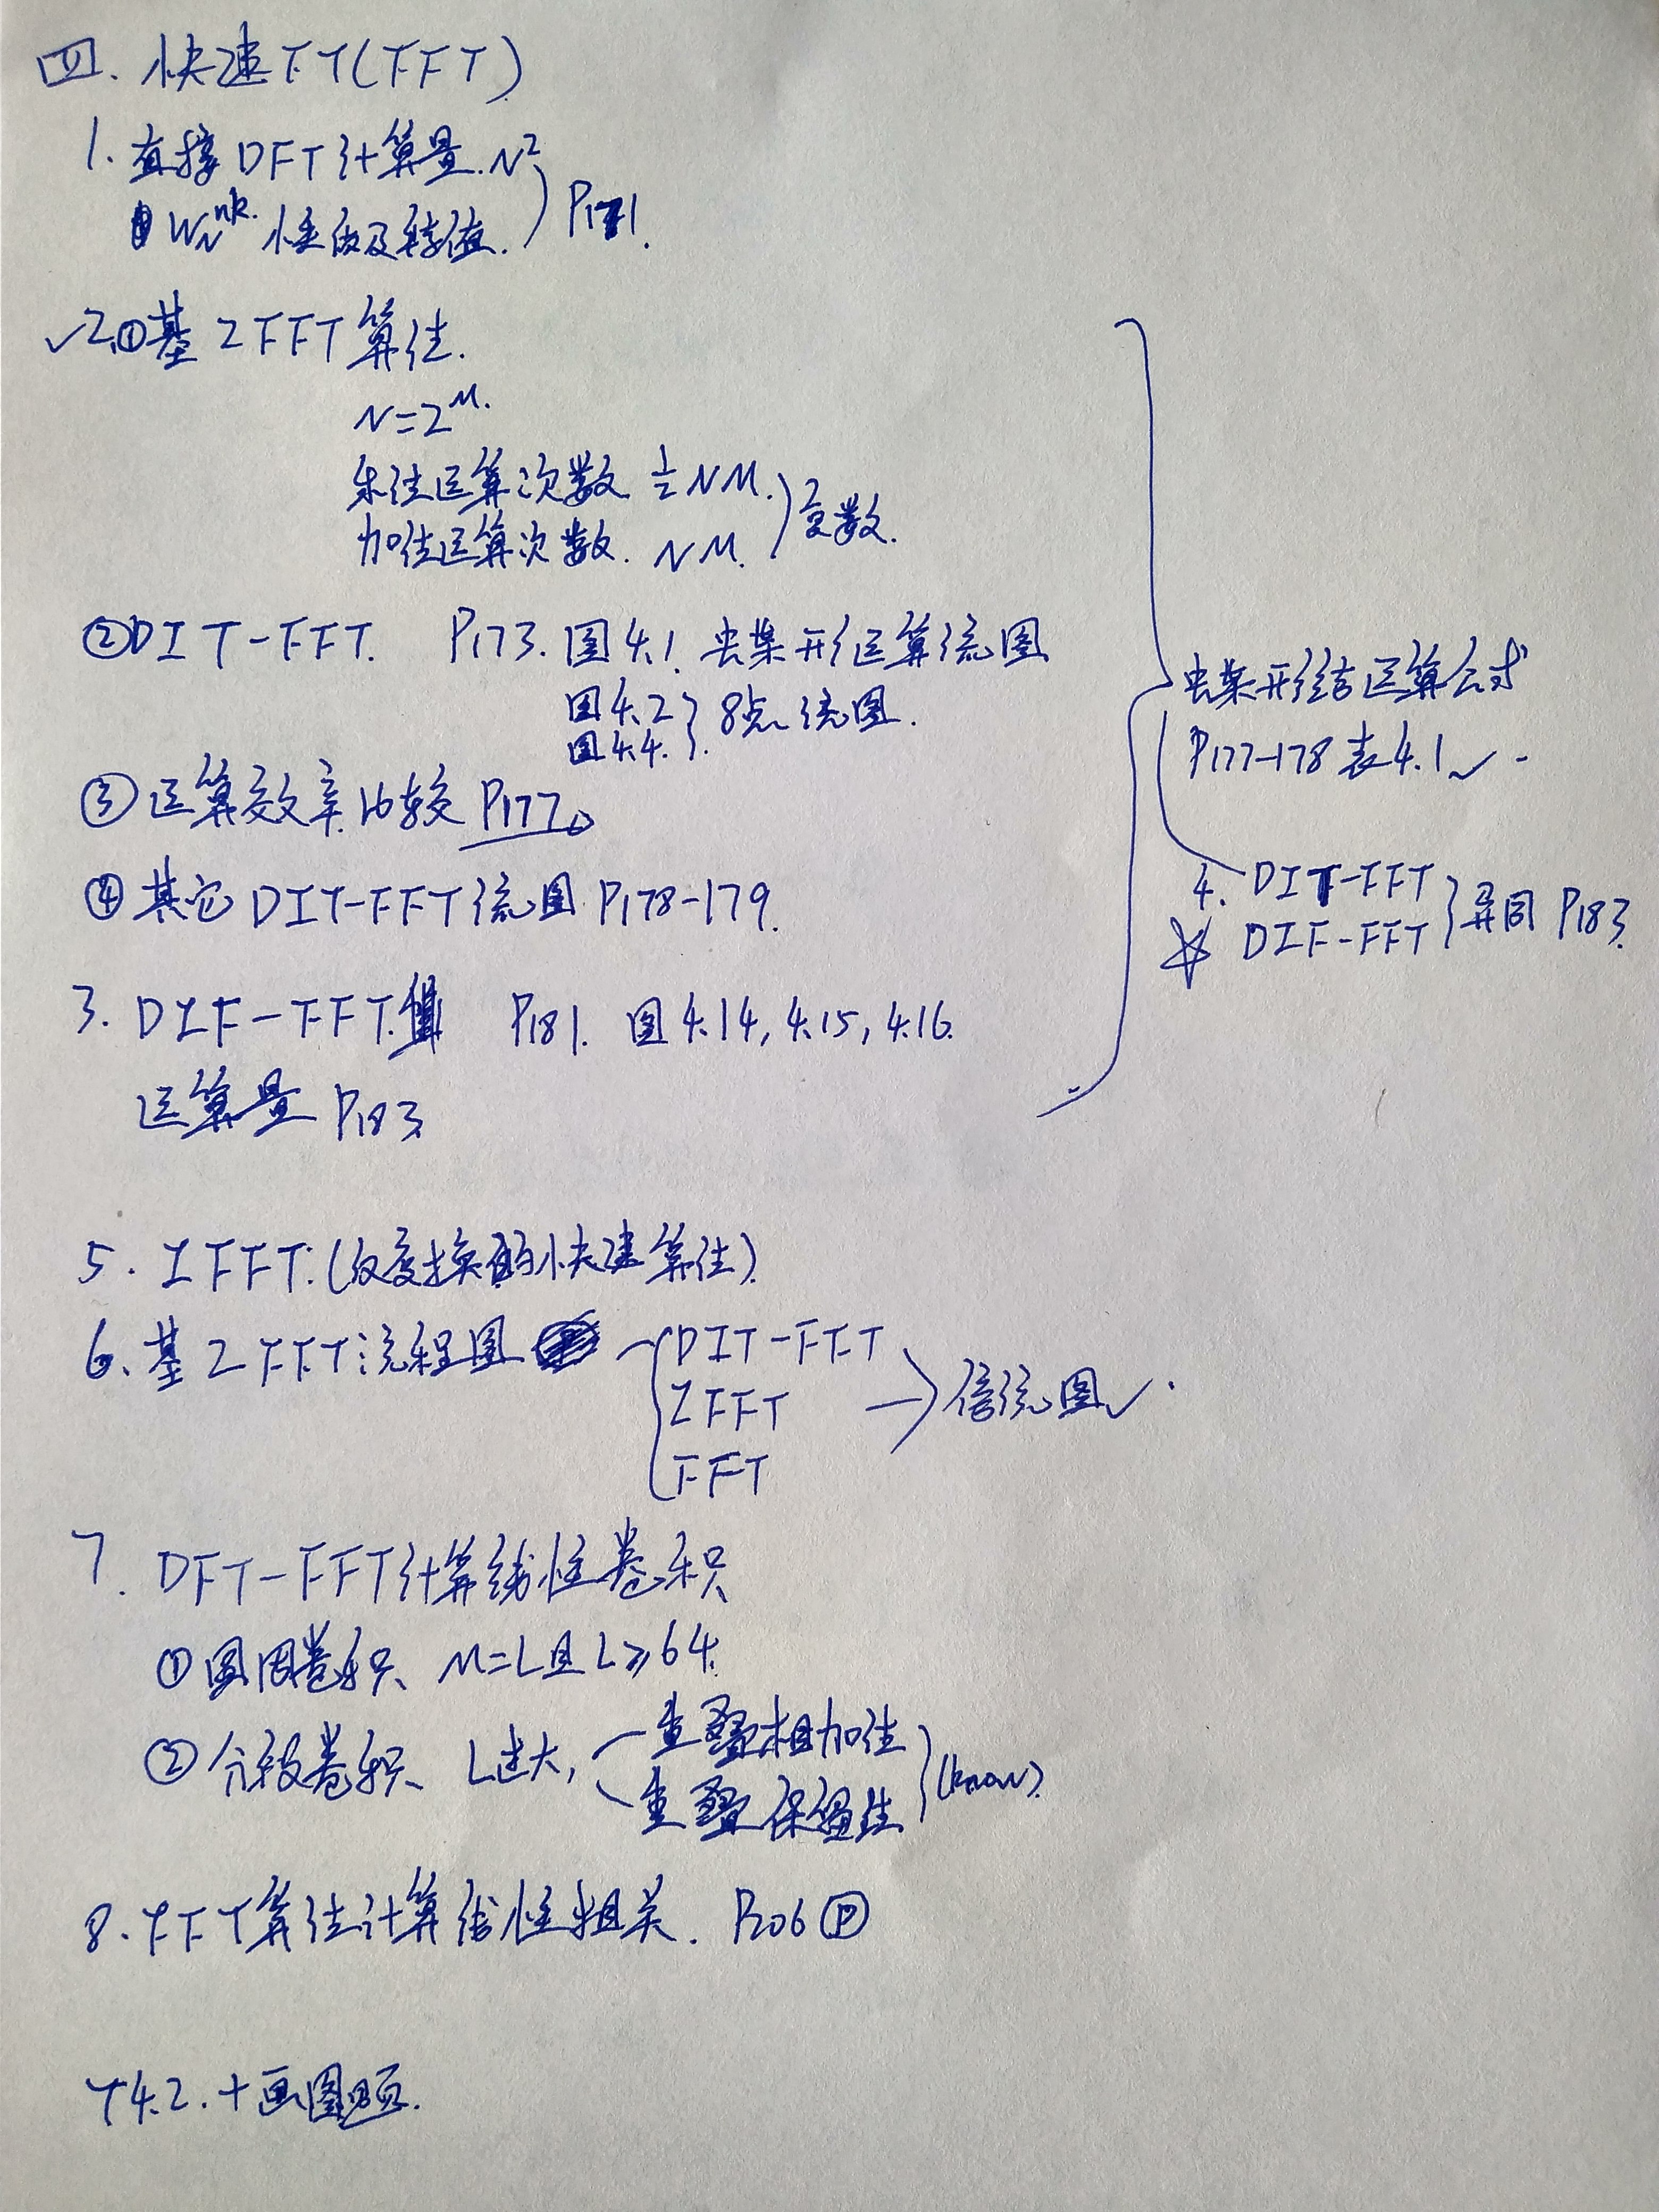 四. 快速FT(FFT)
1. 直接DFT计算量. N²
W_N^{nk}. 性质及特值. ) P171.
✓2.①基2FFT算法.
N=2^M.
乘法运算次数 ½NM.
加法运算次数. NM. ) 复数.
②DIT-FFT. P173. 图4.1. 蝶形运算流图
图4.2
图4.4. } 8点流图.
③运算效率比较 P177。
④其它DIT-FFT流图 P178-179.
3. DIF-FFT. P181. 图4.14, 4.15, 4.16.
运算量 P183
蝶形结运算公式
P177-178 表4.1 ✓
4. DIT-FFT
DIF-FFT } 异同 P183.
5. IFFT: (反变换的快速算法).
6. 基2FFT流程图 DIT-FFT
IFFT
FFT
→ 信流图✓.
7. DFT-FFT计算线性卷积
①圆周卷积、M=L且L≥64.
②分段卷积、L过大, 重叠相加法
重叠保留法 } (know).
8. FFT算法计算线性相关. P206
T4.2. +画图题.